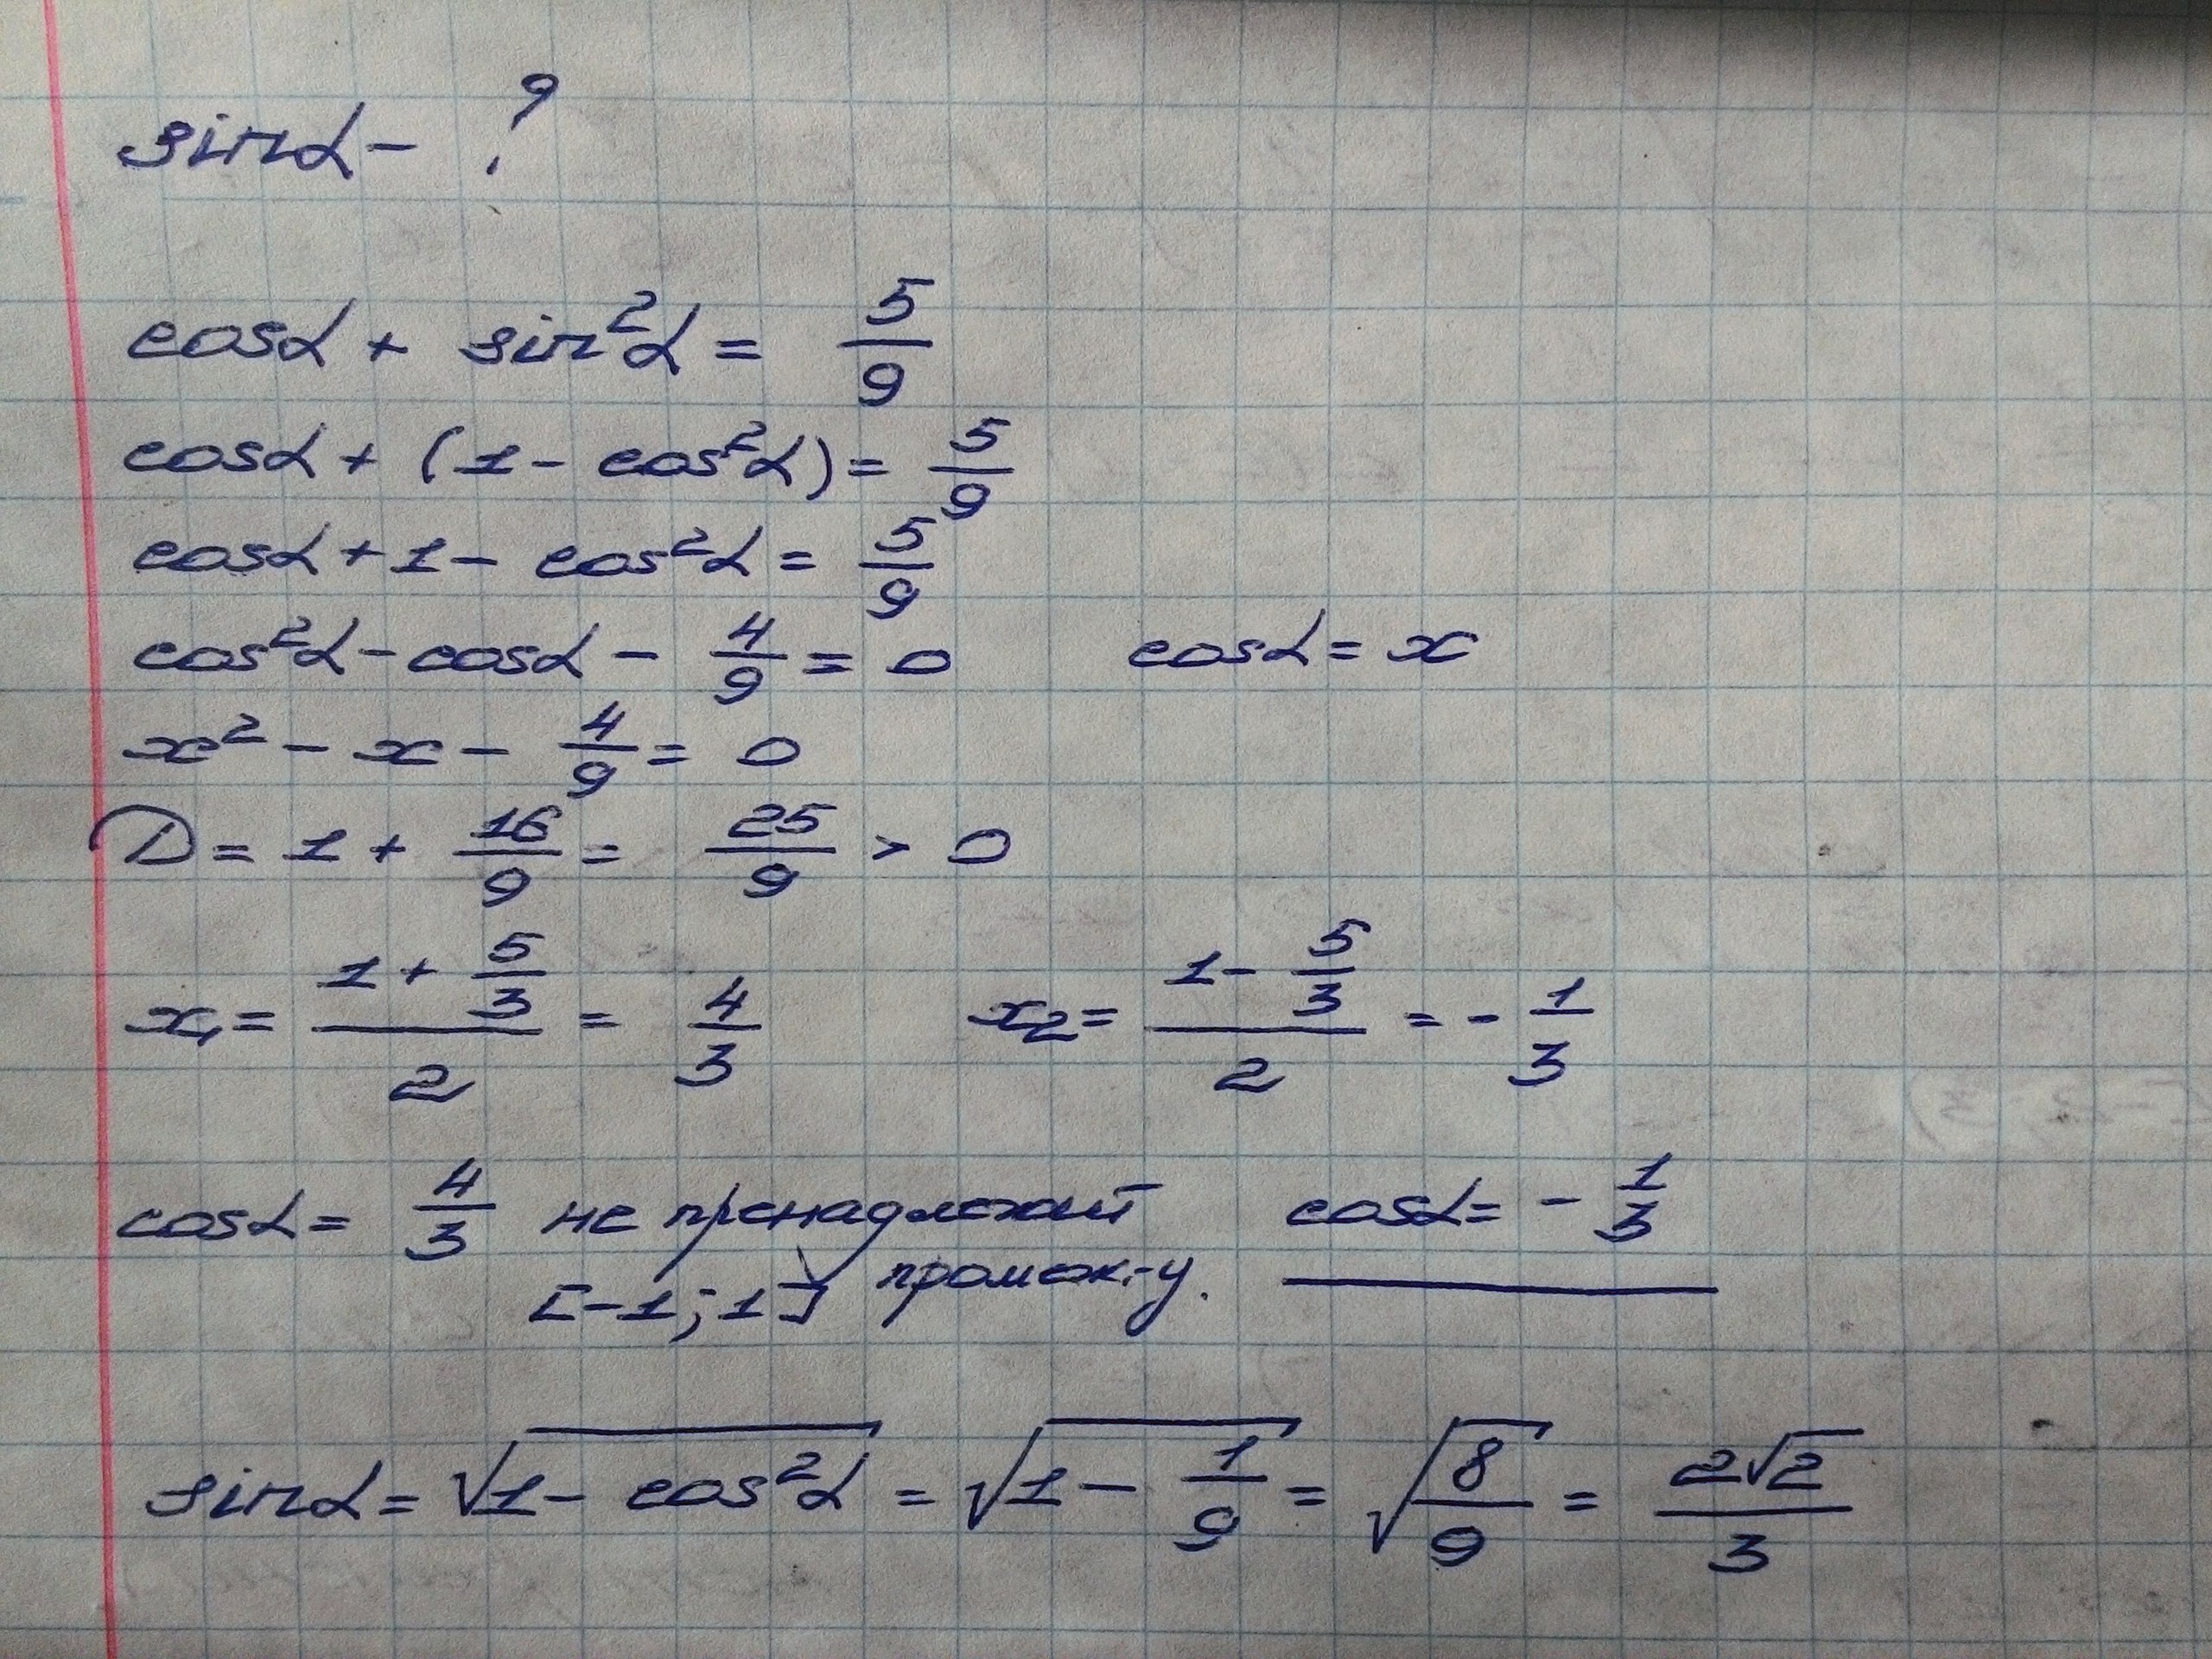 sinα - ?
cosα + sin²α = 5/9
cosα + (1 - cos²α) = 5/9
cosα + 1 - cos²α = 5/9
cos²α - cosα - 4/9 = 0 cosα = x
x² - x - 4/9 = 0
D = 1 + 16/9 = 25/9 > 0
x₁ = (1 + 5/3)/2 = 4/3 x₂ = (1 - 5/3)/2 = -1/3
cosα = 4/3 не пренадлежит cosα = -1/3
[-1; 1] промеж-у.
sinα = √(1 - cos²α) = √(1 - 1/9) = √(8/9) = 2√2/3